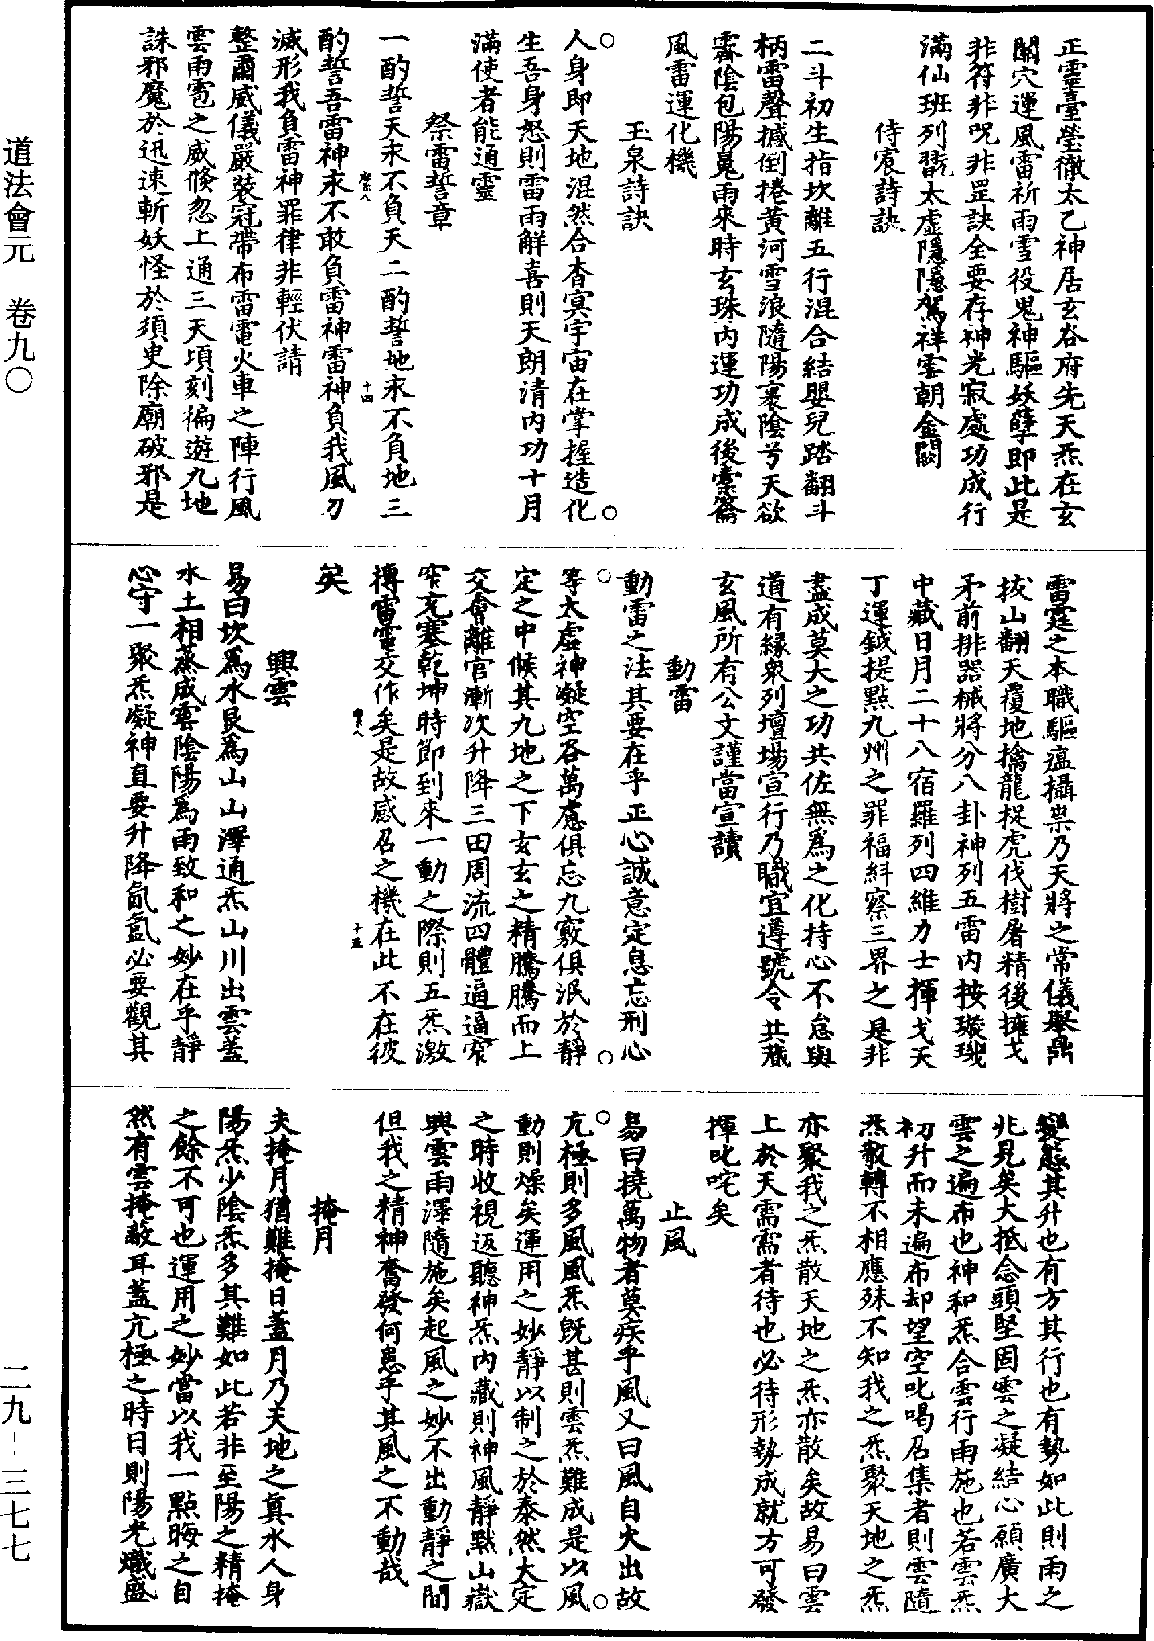 正靈臺瑩徹太乙神居玄谷府先天炁在玄
關穴運風雷祈雨雪役鬼神驅妖孽即此是
非符非呪非罡訣全要存神光寂處功成行
滿仙班列翫太虛隱隱駕祥雲朝金闕
侍宸詩訣
二斗初生指坎離五行混合結嬰兒踏翻斗
柄雷聲撼倒捲黃河雪浪隨陽裹陰兮天欲
霽陰包陽鬼雨來時玄珠內運功成後橐籥
風雷運化機
玉泉詩訣
人身即天地混然合杳冥宇宙在掌握造化
生吾身怒則雷雨解喜則天朗清內功十月
滿使者能通靈
祭雷誓章
一酌誓天永不負天二酌誓地永不負地三
酌誓吾雷神永不敢負雷神雷神負我風刀
滅形我負雷神罪律非輕伏請
十四
整爾威儀嚴裝冠帶布雷電火車之陣行風
雲雨雹之威倏忽上通三天頃刻徧遊九地
誅邪魔於迅速斬妖怪於須臾除廟破邪是
雷霆之本職驅瘟攝祟乃天將之常儀舉鼎
拔山翻天覆地擒龍捉虎伐樹屠精後擁戈
矛前排器械將分八卦神列五雷內按璇璣
中藏日月二十八宿羅列四維力士揮戈天
丁運鉞提點九州之罪福糾察三界之是非
盡成莫大之功共佐無為之化持心不怠與
道有緣眾列壇場宣行乃職宜遵號令共讚
玄風所有公文謹當宣讀
動雷
動雷之法其要在乎正心誠意定息忘刑心
等太虛神凝空谷萬慮俱忘九竅俱泯於靜
定之中候其九地之下玄玄之精騰騰而上
交會離宮漸次升降三田周流四體逼逼窄
窄充塞乾坤時節到來一動之際則五炁激
摶雷電交作矣是故感召之機在此不在彼
矣
十五
興雲
易曰坎為水艮為山山澤通炁山川出雲蓋
水土相蒸成雲陰陽為雨致和之妙在乎靜
心守一聚炁凝神直要升降氤氳必要觀其
變態其升也有方其行也有勢如此則雨之
兆見矣大抵念頭堅固雲之凝結心願廣大
雲之遍布也神和炁合雲行雨施也若雲炁
初升而未遍布却望空叱喝召集者則雲隨
炁散轉不相應殊不知我之炁聚天地之炁
亦聚我之炁散天地之炁亦散矣故易曰雲
上於天需需者待也必待形勢成就方可發
揮叱咤矣
止風
易曰撓萬物者莫疾乎風又曰風自火出故
亢極則多風風炁既甚則雲炁難成是以風
動則燥矣運用之妙靜以制之於泰然大定
之時收視返聽神炁內藏則神風靜默山嶽
興雲雨澤隨施矣起風之妙不出動靜之間
但我之精神奮發何患乎其風之不動哉
掩月
夫掩月猶難掩日蓋月乃天地之真水人身
陽炁少陰炁多其難如此若非至陽之精掩
之餘不可也運用之妙當以我一點晦之自
然有雲掩蔽耳蓋亢極之時日則陽光熾盛
道法會元 卷九〇
二九-三七七